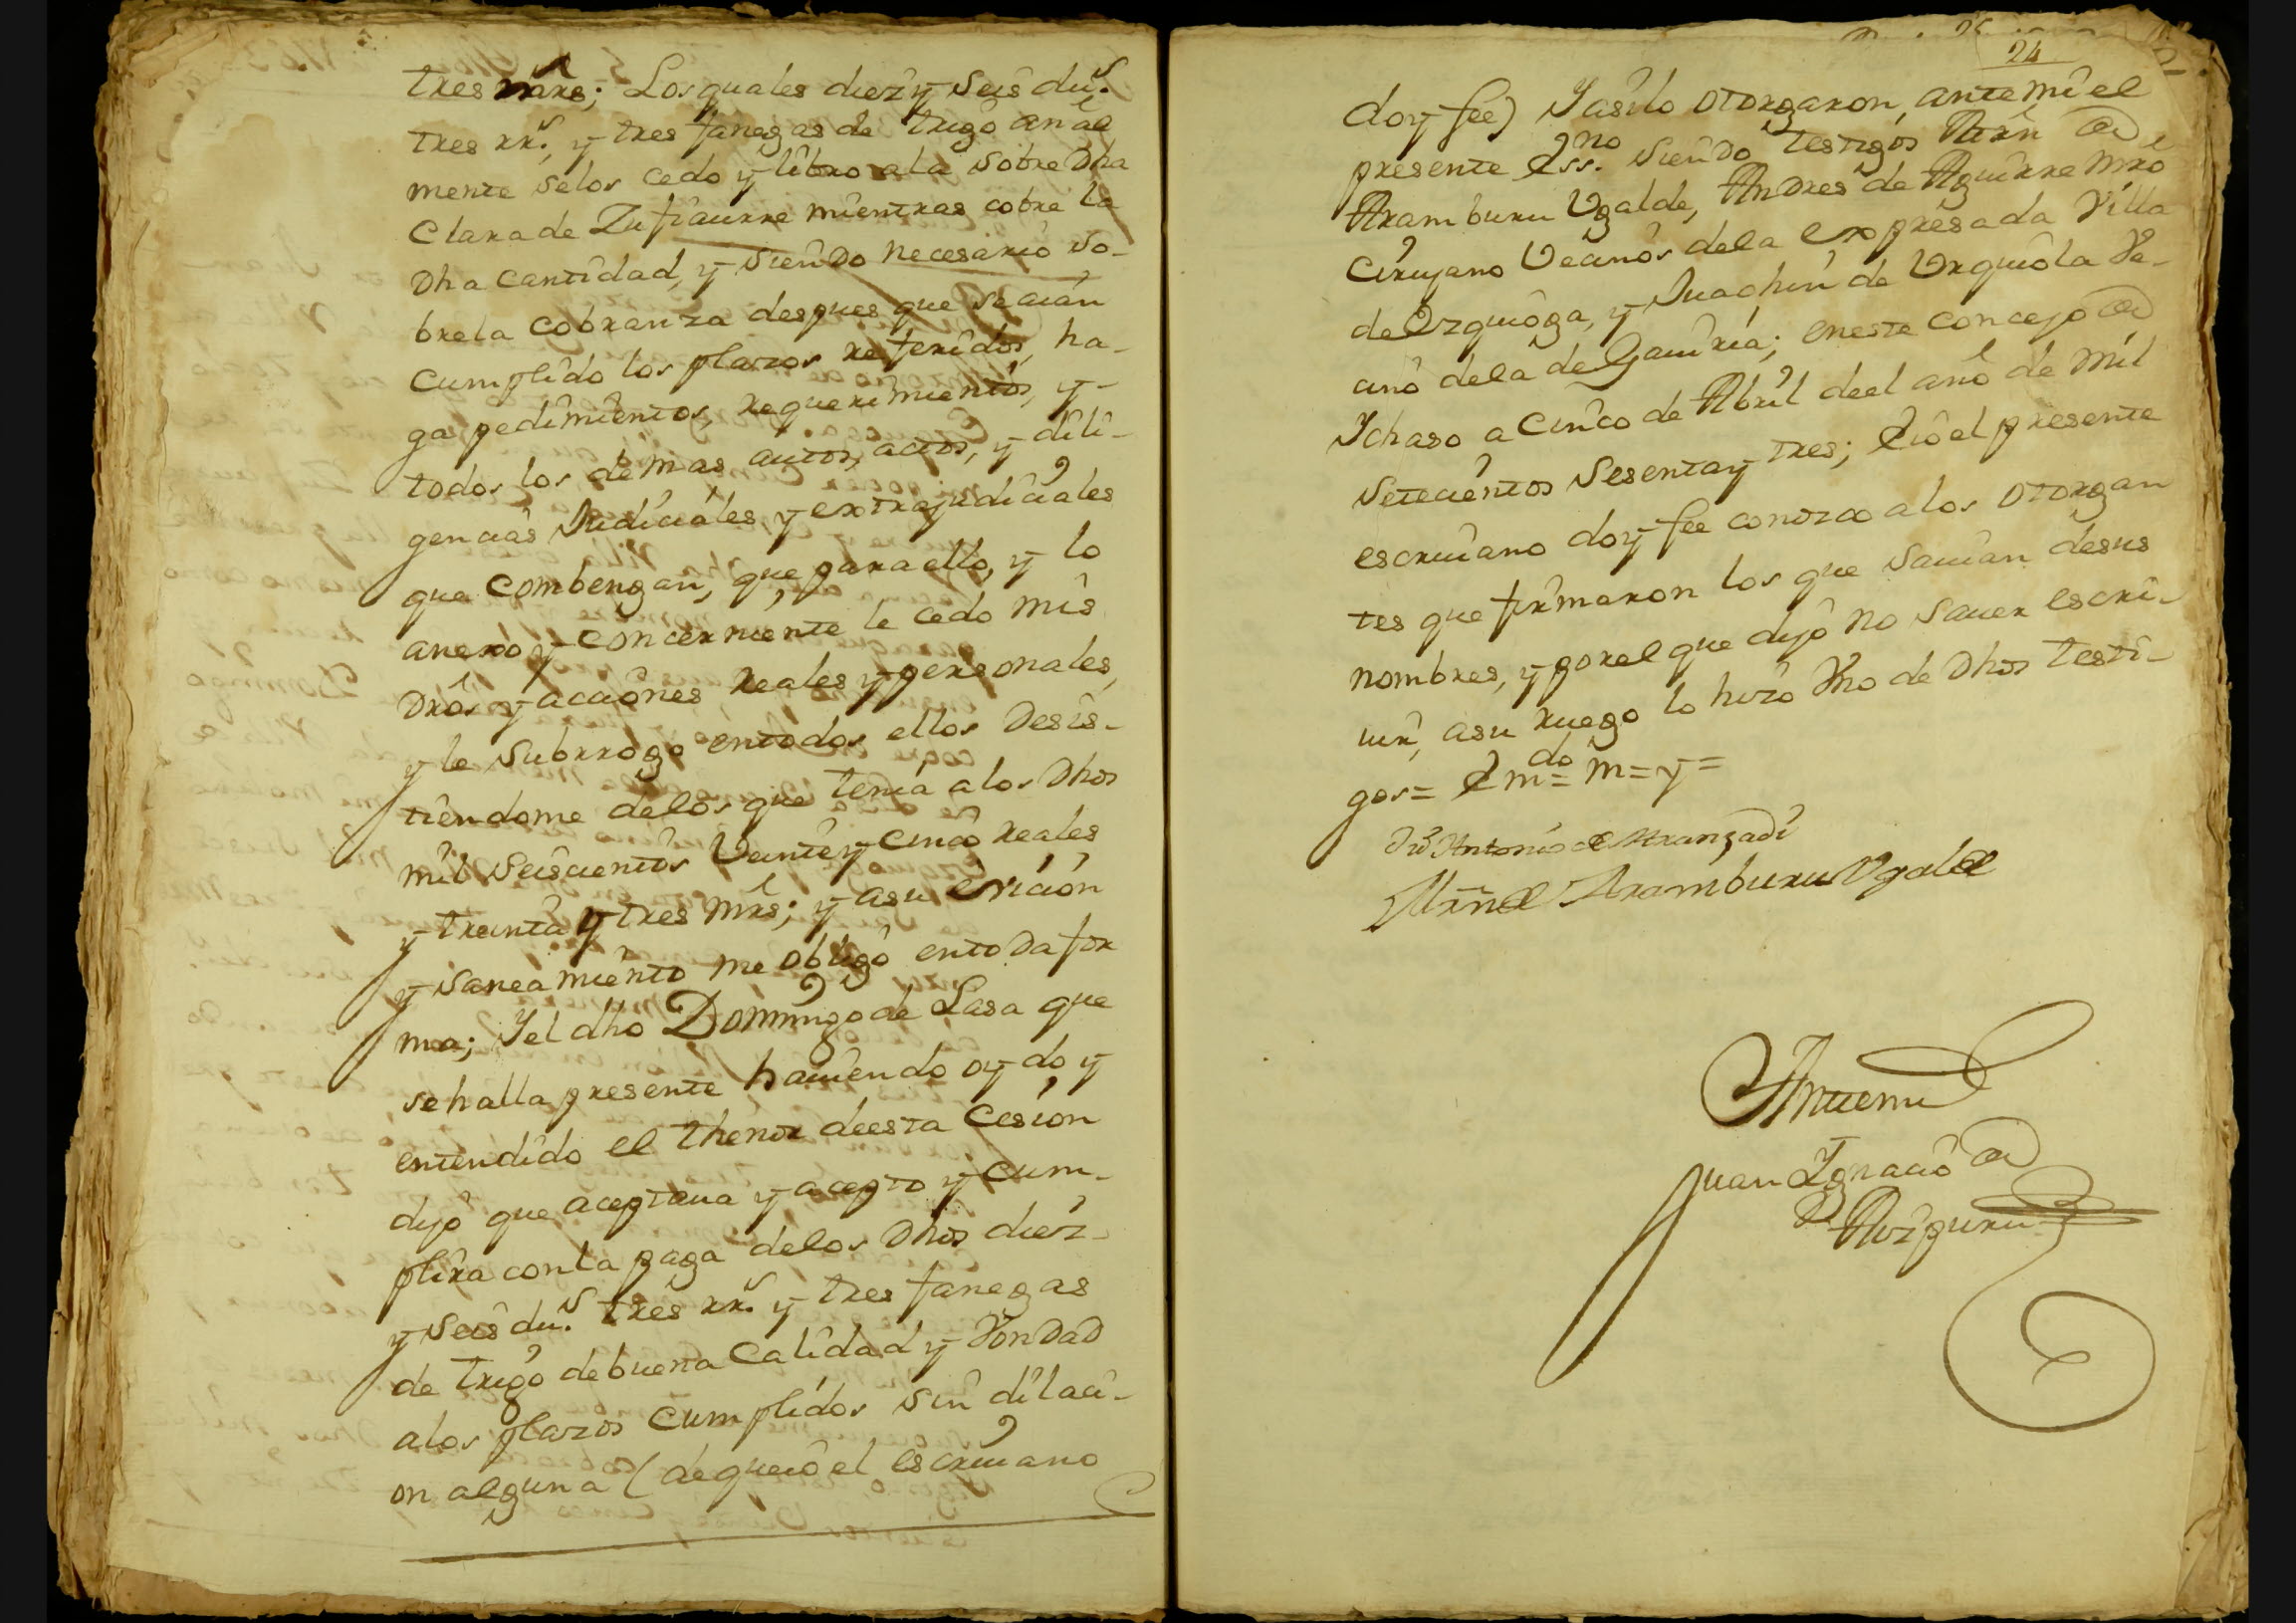 tres mrs; Los quales diez y seis du.s
tres rr.s, y tres fanegas de trigo anal
mente selos cedo y libro ala sobre Dha
Clara de Zufiaurre mientras cobre la
Dha cantidad, y siendo necesario so-
brela cobranza despues que se aian
cumplido los plazos referidos, ha-
ga pedimientos, requerimientos, y-
todos los demas autos, actos, y dili-
gencias Judiciales, y extrajudiciales
que combengan, que para ello, y lo
anexo y-concerniente le cedo mis
Dros y-acciones reales y personales,
y le subrrogo entodos ellos Desis-
tiendome delos que tenia alos Dhos
mil seiscientos Veinte y-cinco reales
y-treinta y tres mrs; y asu evicion
y-saneamiento me obligo entoda for
ma; Y el dho Domingo de Lasa que
se halla presente haviendo oydo y
entendido el thenor deesta Cesion
dijo que aceptava y acepto y-cum-
plira con la paga delos Dhos diez-
y seis du.s tres rr.s y-tres fanegas
de trigo de buena calidad y Vondad
alos plazos cumplidos sin dilaci-
on alguna (de que io el escrivano
24
doy fee) Y asi lo otorgaron, ante mi el
presente Ess.no siendo testigos Mrn de
Aramburu Ugalde, Andres de Aguirre Mro
Cirujano Vecinos dela expresada Villa
de Ezquioga, y Juachin de Urquiola Ve-
cino dela de Gaviria; en este concejo de
Ichaso a cinco de Abril deel año de mil
setecientos sesenta y tres; E io el presente
escrivano doy-fee conozco alos otorgan
tes que firmaron los que savian desus
nombres, y por el que dijo no saver escri-
vir, asu ruego lo hizo Uno de Dhos testi-
gos= Em.do= m= y=
Antonio de Aranzadi
Mrn de Aramburu Ugalde
Ante mi
Juan Ignacio de
Aizpuru